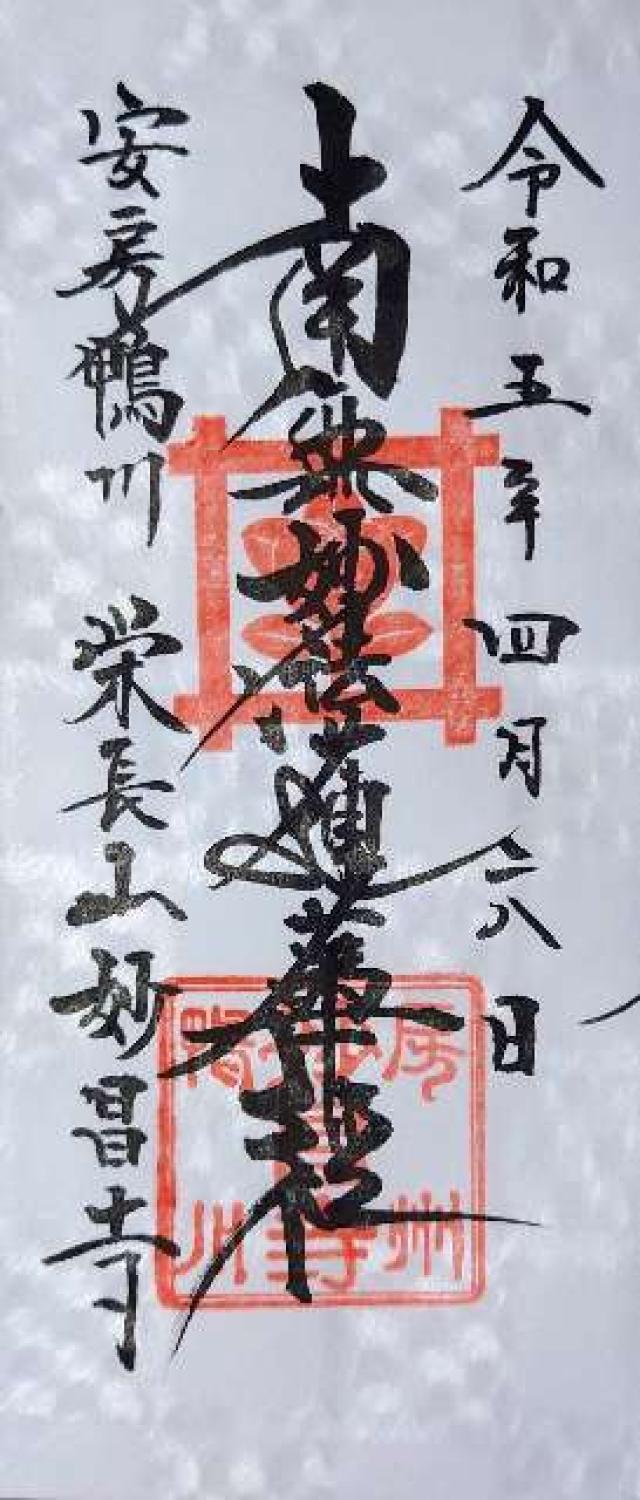 令和五年四月二八日
南無妙法蓮華経
安房鴨川 栄長山妙昌寺
房州
妙昌寺
鴨川